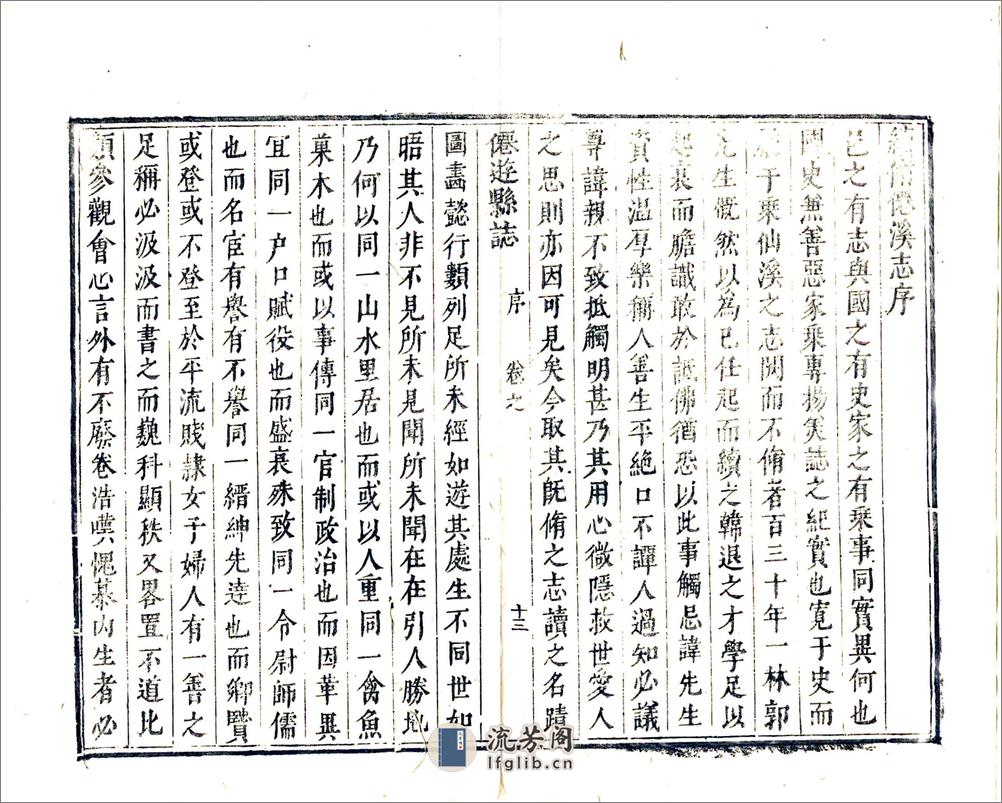 續脩僊溪志序
邑之有志與國之有史家之有乘事同實異何也
國史無善惡家乘專揚美誌之紀實也寬于史而
于乘仙溪之志閱而不脩者百三十年一林郭
先生慨然以為已任起而續之韓退之才學足以
起衰而膽識敢於詆佛猶恐以此事觸忌諱先生
賓性温厚樂稱人善生平絶口不譚人過知必議
尊諱親不致抵觸明甚乃其用心微隱救世愛人
之思則亦因可見矣今取其旣脩之志讀之名蹟
僊遊縣誌 序 卷之 十三
圖畵懿行類列足所未經如遊其處生不同世如
晤其人非不見所未見聞所未聞在在引人勝地
乃何以同一山水里居也而或以人重同一禽魚
菓木也而或以事傳同一官制政治也而因革異
宜同一户口賦役也而盛衰殊致同一令尉師儒
也而名宦有譽有不譽同一縉紳先達也而鄉賢
或登或不登至於平流賤隸女子婦人有一善之
足稱必汲汲而書之而巍科顯秩又畧置不道比
類參觀會心言外有不廢卷浩嘆愧慕内生者必
流芳阁
lfglib.cn